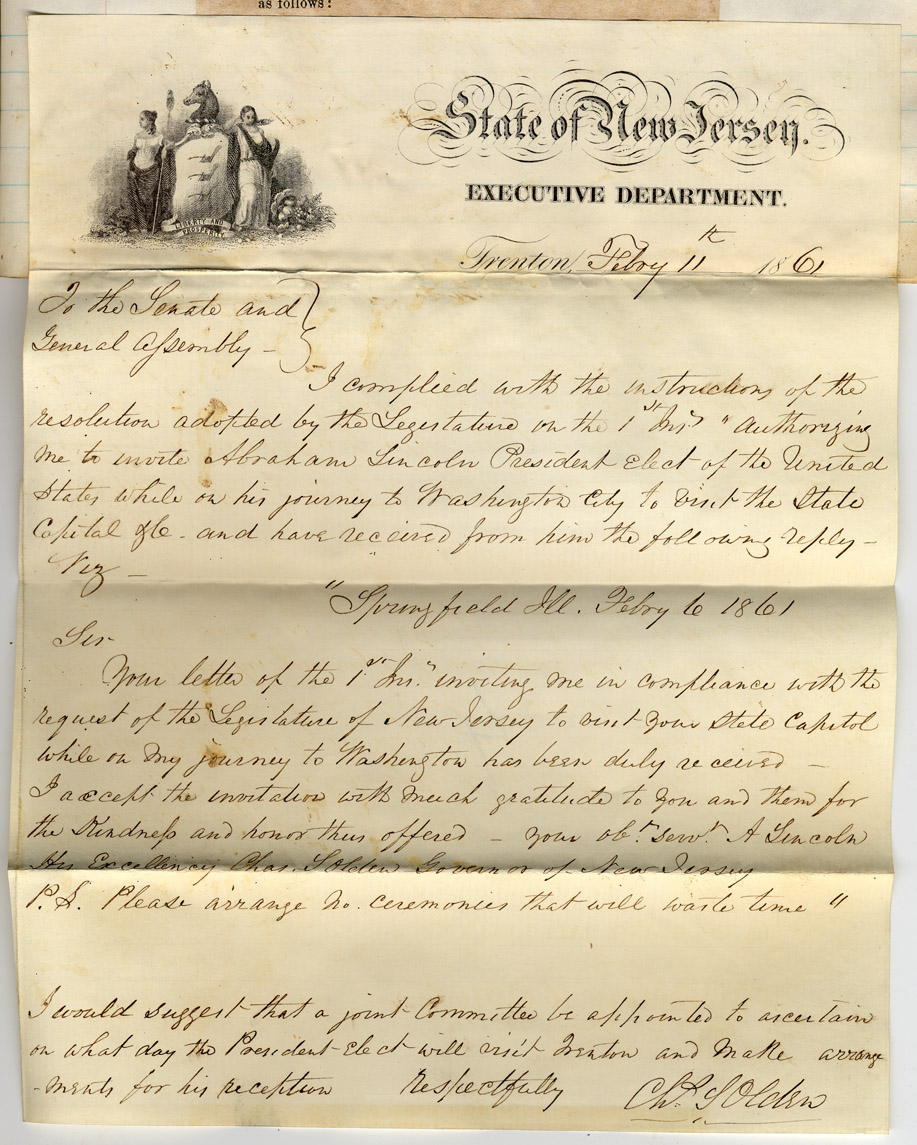 as follows:
State of New Jersey.
EXECUTIVE DEPARTMENT.
LIBERTY AND
PROSPERITY
Trenton, Febry 11th 1861
To the Senate and
General Assembly -
I complied with the instructions of the
resolution adopted by the Legislature on the 1st Inst "authorizing
me to invite Abraham Lincoln President Elect of the United
States while on his journey to Washington City to visit the State
Capital &c. and have received from him the following reply -
Viz -
"Springfield Ill. Febry 6 1861
Sir
Your letter of the 1st Ins. inviting me in compliance with the
request of the Legislature of New Jersey to visit your State Capitol
while on my journey to Washington has been duly received -
I accept the invitation with much gratitude to you and them for
the Kindness and honor thus offered - your obt. servt. A Lincoln
His Excellency Chas. S Olden Governor of New Jersey
P.S. Please arrange no. ceremonies that will waste time "
I would suggest that a joint Committee be appointed to ascertain
on what day the President Elect will visit Trenton and make arrange
-ments for his reception Respectfully Chs. S Olden